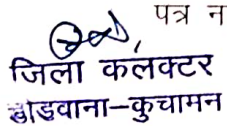 पत्र न
जिला कलक्टर
डीडवाना-कुचामन